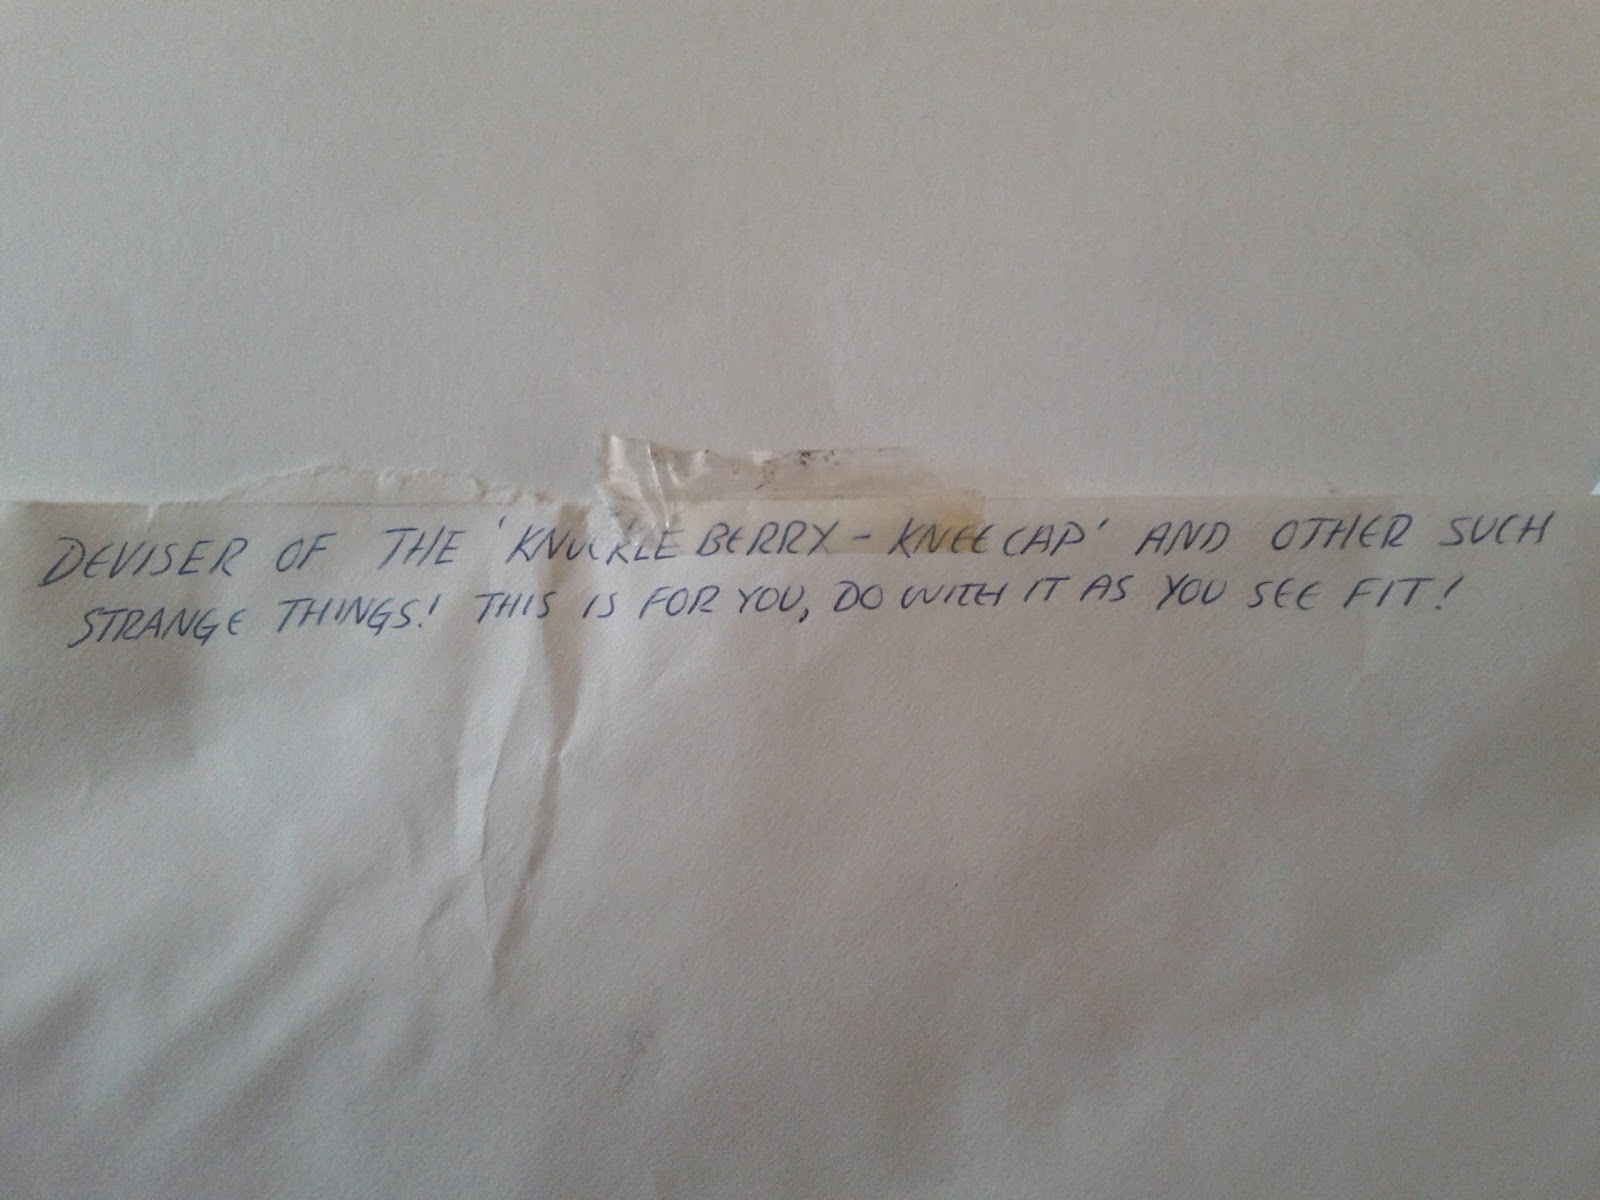 DEVISER OF THE 'KNUCKLEBERRY - KNEECAP' AND OTHER SUCH
STRANGE THINGS! THIS IS FOR YOU, DO WITH IT AS YOU SEE FIT!